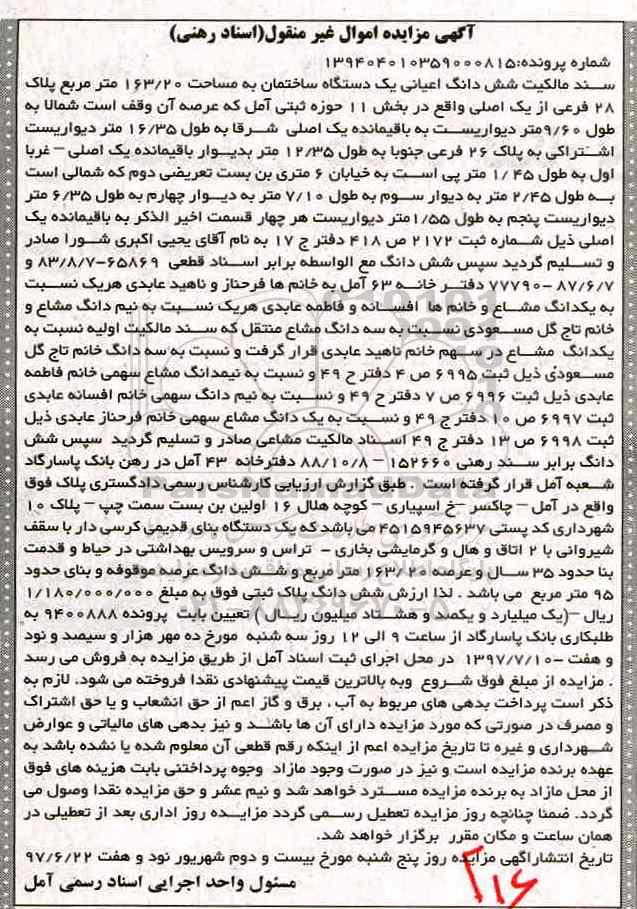 آگهی مزایده اموال غیر منقول(اسناد رهنی)
شماره پرونده:۱۳۹۴۰۴۰۱۰۳۵۹۰۰۰۸۱۵
سند مالکیت شش دانگ اعیانی یک دستگاه ساختمان به مساحت ۱۶۳/۲۰ متر مربع پلاک
۲۸ فرعی از یک اصلی واقع در بخش ۱۱ حوزه ثبتی آمل که عرصه آن وقف است شمالا به
طول ۹/۶۰متر دیواریست به باقیمانده یک اصلی شرقا به طول ۱۶/۳۵ متر دیواریست
اشتراکی به پلاک ۲۶ فرعی جنوبا به طول ۱۲/۳۵ متر بدیوار باقیمانده یک اصلی – غربا
اول به طول ۱/۴۵ متر پی است به خیابان ۶ متری بن بست تعریضی دوم که شمالی است
به طول ۲/۴۵ متر به دیوار سوم به طول ۷/۱۰ متر به دیوار چهارم به طول ۶/۳۵ متر
دیواریست پنجم به طول ۱/۵۵متر دیواریست هر چهار قسمت اخیر الذکر به باقیمانده یک
اصلی ذیل شماره ثبت ۲۱۷۲ ص ۴۱۸ دفتر ج ۱۷ به نام آقای یحیی اکبری شورا صادر
و تسلیم گردید سپس شش دانگ مع الواسطه برابر اسناد قطعی ۶۵۸۶۹-۸۳/۸/۷ و
۸۷/۶/۷ -۷۷۷۹۰ دفتر خانه ۶۳ آمل به خانم ها فرحناز و ناهید عابدی هریک نسبت
به یکدانگ مشاع و خانم ها افسانه و فاطمه عابدی هریک نسبت به نیم دانگ مشاع و
خانم تاج گل مسعودی نسبت به سه دانگ مشاع منتقل که سند مالکیت اولیه نسبت به
یکدانگ مشاع در سهم خانم ناهید عابدی قرار گرفت و نسبت به سه دانگ خانم تاج گل
مسعودی ذیل ثبت ۶۹۹۵ ص ۴ دفتر ح ۴۹ و نسبت به نیمدانگ مشاع سهمی خانم فاطمه
عابدی ذیل ثبت ۶۹۹۶ ص ۷ دفتر ح ۴۹ و نسبت به نیم دانگ سهمی خانم افسانه عابدی
ثبت ۶۹۹۷ ص ۱۰ دفتر ج ۴۹ و نسبت به یک دانگ مشاع سهمی خانم فرحناز عابدی ذیل
ثبت ۶۹۹۸ ص ۱۳ دفتر ج ۴۹ اسناد مالکیت مشاعی صادر و تسلیم گردید سپس شش
دانگ برابر سند رهنی ۱۵۲۶۶۰ – ۸۸/۱۰/۸ دفترخانه ۴۳ آمل در رهن بانک پاسارگاد
شعبه آمل قرار گرفته است . طبق گزارش ارزیابی کارشناس رسمی دادگستری پلاک فوق
واقع در آمل – چاکسر –خ اسپیاری – کوچه هلال ۱۶ اولین بن بست سمت چپ – پلاک ۱۰
شهرداری کد پستی ۴۶۱۵۹۴۵۶۳۷ می باشد که یک دستگاه بنای قدیمی کرسی دار با سقف
شیروانی با ۲ اتاق و هال و گرمایشی بخاری - تراس و سرویس بهداشتی در حیاط و قدمت
بنا حدود ۳۵ سال و عرصه ۱۶۳/۲۰ متر مربع و شش دانگ عرصه موقوفه و بنای حدود
۹۵ متر مربع می باشد . لذا ارزش شش دانگ پلاک ثبتی فوق به مبلغ ۱/۱۸۰/۰۰۰/۰۰۰
ریال –(یک میلیارد و یکصد و هشتاد میلیون ریال ) تعیین بابت پرونده ۹۴۰۰۸۸۸ به
طلبکاری بانک پاسارگاد از ساعت ۹ الی ۱۲ روز سه شنبه مورخ ده مهر هزار و سیصد و نود
و هفت -۱۳۹۷/۷/۱۰ در محل اجرای ثبت اسناد آمل از طریق مزایده به فروش می رسد
. مزایده از مبلغ فوق شروع وبه بالاترین قیمت پیشنهادی نقدا فروخته می شود. لازم به
ذکر است پرداخت بدهی های مربوط به آب ، برق و گاز اعم از حق انشعاب و یا حق اشتراک
و مصرف در صورتی که مورد مزایده دارای آن ها باشند و نیز بدهی های مالیاتی و عوارض
شهرداری و غیره تا تاریخ مزایده اعم از اینکه رقم قطعی آن معلوم شده یا نشده باشد به
عهده برنده مزایده است و نیز در صورت وجود مازاد وجوه پرداختنی بابت هزینه های فوق
از محل مازاد به برنده مزایده مسترد خواهد شد و نیم عشر و حق مزایده نقدا وصول می
گردد. ضمنا چنانچه روز مزایده تعطیل رسمی گردد مزایده روز اداری بعد از تعطیلی در
همان ساعت و مکان مقرر برگزار خواهد شد.
تاریخ انتشاراگهی مزایده روز پنج شنبه مورخ بیست و دوم شهریور نود و هفت ۹۷/۶/۲۲
مسئول واحد اجرایی اسناد رسمی آمل